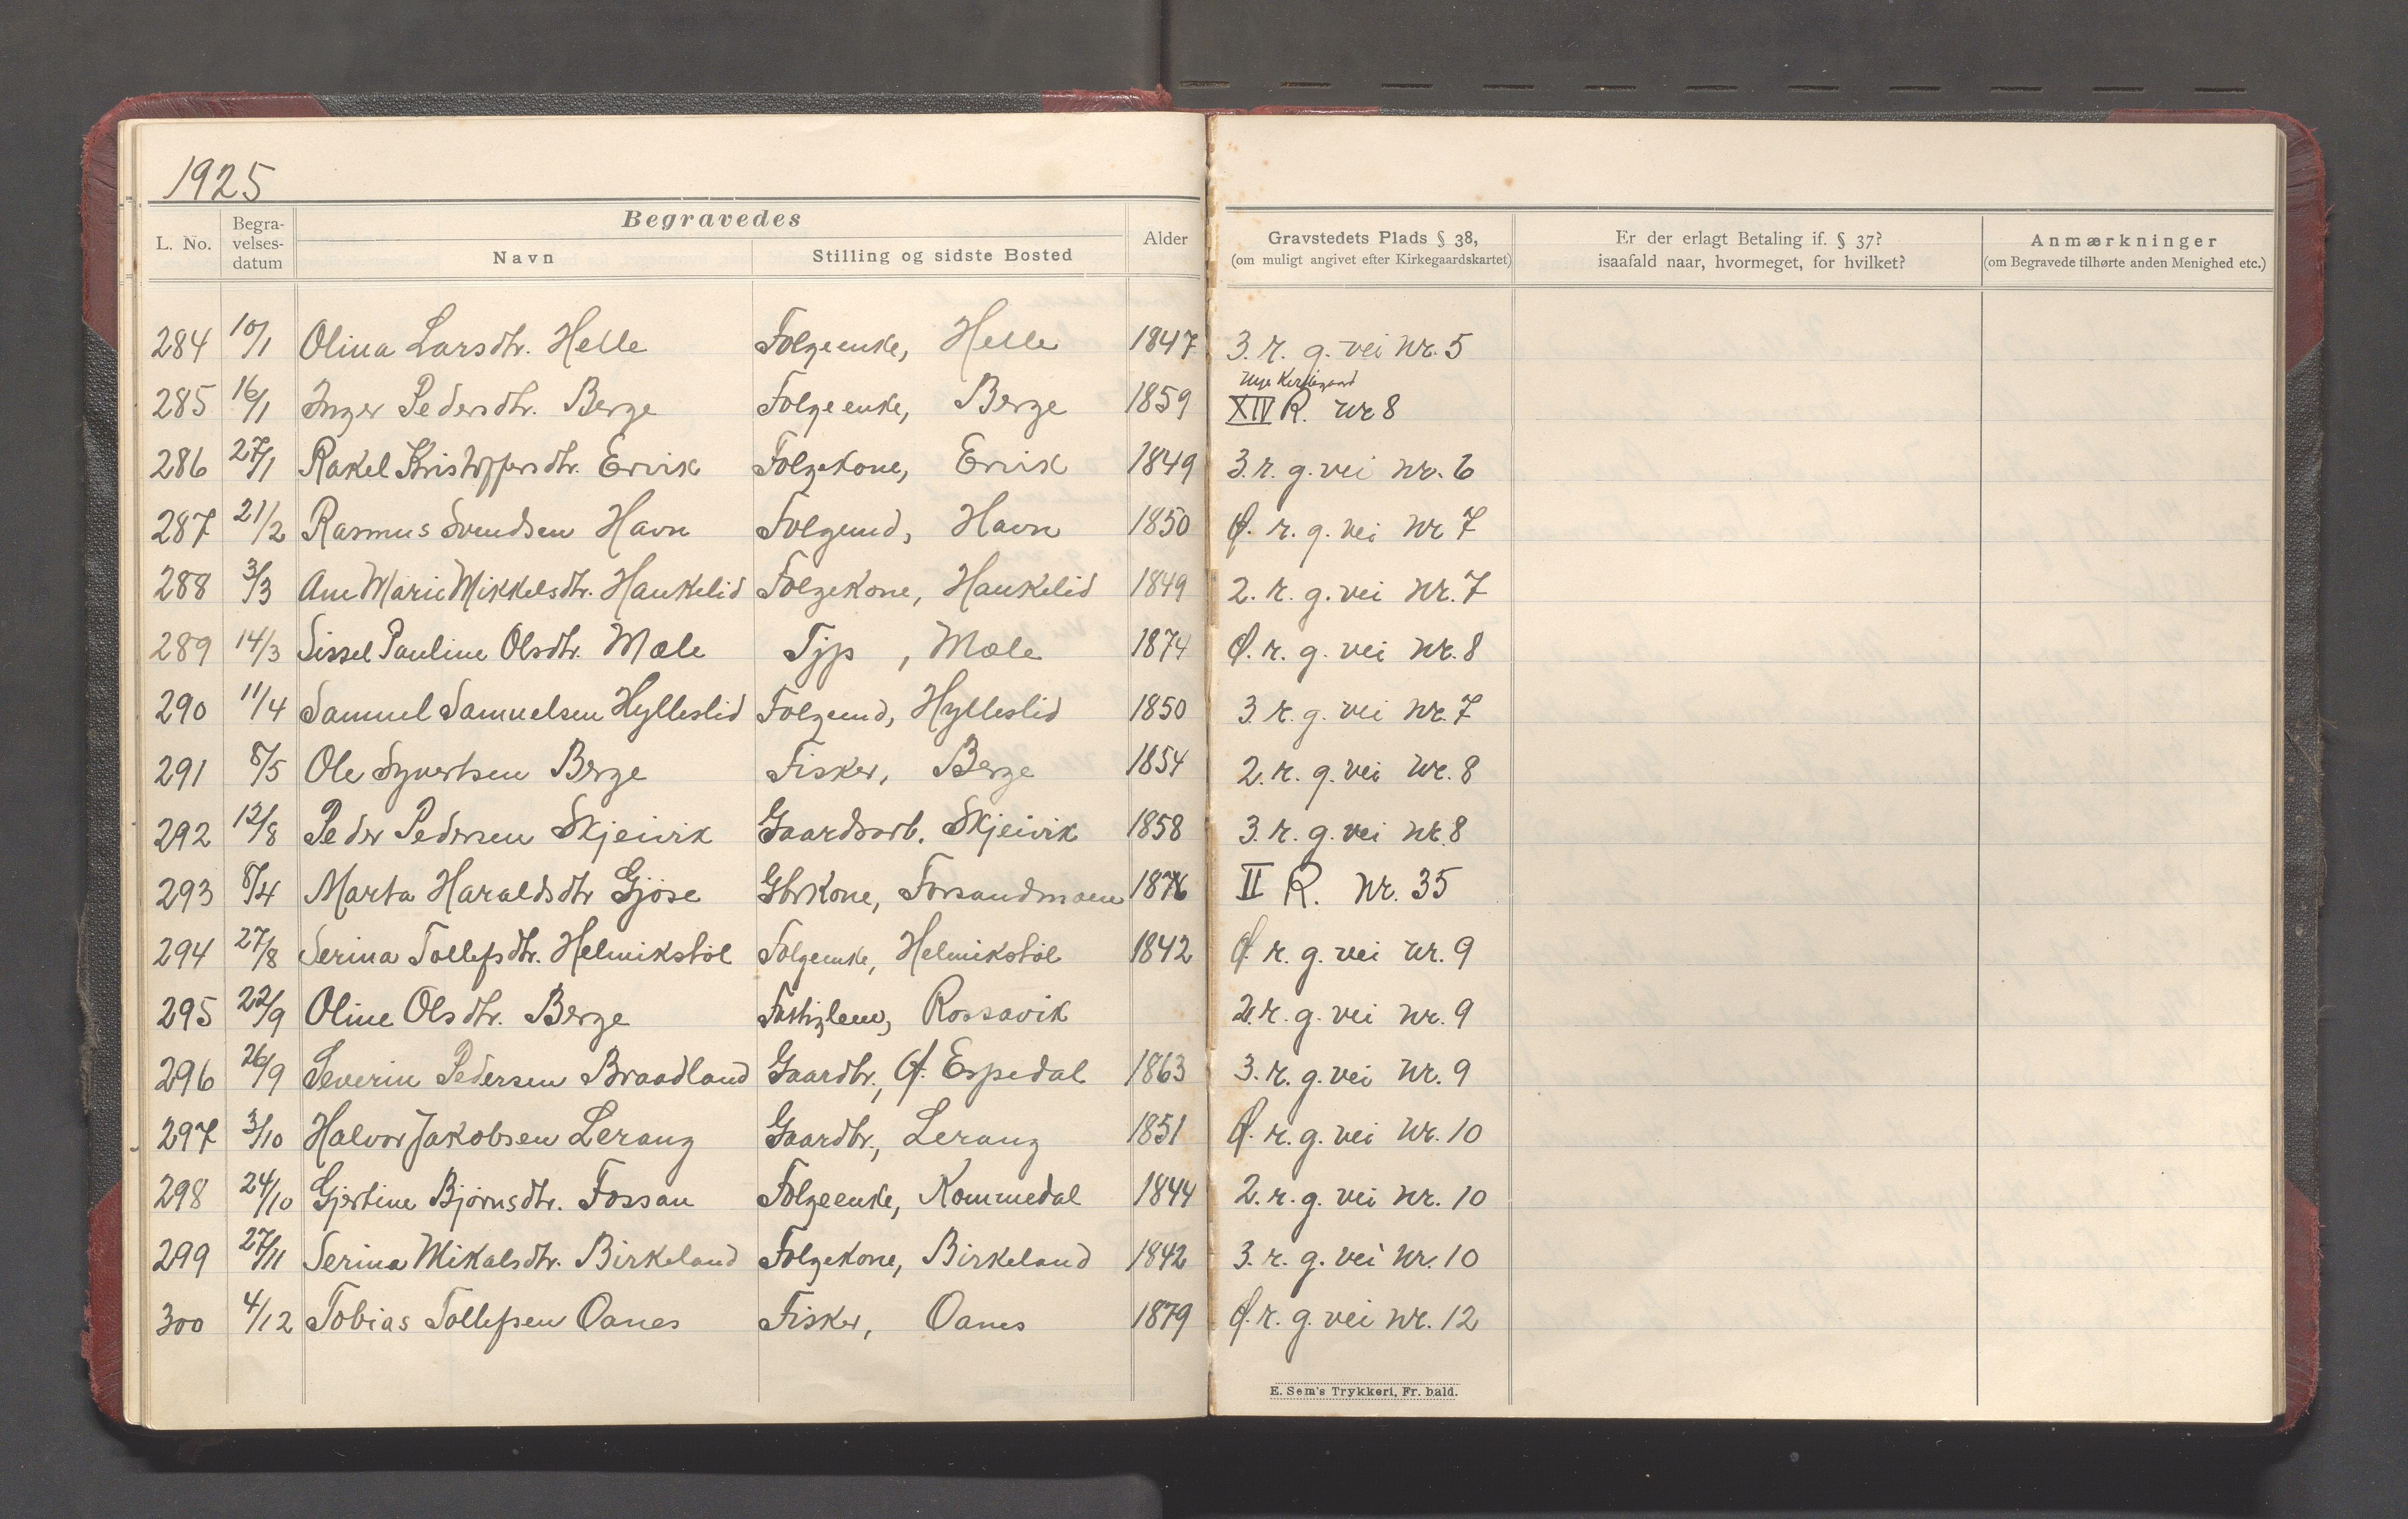 1925
L. No. Begra-velses-datum Begravedes Alder Gravstedets Plads § 38, Er der erlagt Betaling if. § 37? Anmærkninger
Navn Stilling og sidste Bosted (om muligt angivet efter Kirkegaardskartet) isaafald naar, hvormeget, for hvilket? (om Begravede tilhørte anden Menighed etc.)
284 10/1 Olina Larsdtr. Helle Folgeenke, Helle 1847 3. r. g. vei nr. 5
Nye Kirkegaard
285 16/1 Inger Pedersdtr. Berge Folgeenke, Berge 1859 XIV R. nr 8
286 27/1 Rakel Kristoffersdtr. Ervik Folgekone, Ervik 1849 3. r. g. vei nr. 6
287 21/2 Rasmus Svendsen Havn Folgemd, Havn 1850 Ø. r. g. vei nr 7
288 3/3 Ane Marie Mikkelsdtr. Haukelid Folgekone, Haukelid 1849 2. r. g. vei nr. 7
289 14/3 Sissel Pauline Olsdtr. Mæle Tjp, Mæle 1874 Ø. r. g. vei nr. 8
290 11/4 Samuel Samuelsen Hylleslid Folgemd, Hylleslid 1850 3 r. g. vei nr. 7
291 8/5 Ole Syvertsen Berge Fisker, Berge 1854 2. r. g. vei nr. 8
292 12/8 Peder Pedersen Skjeivik Gaardsarb. Skjeivik 1858 3. r. g. vei nr. 8
293 8/4 Marta Haraldsdtr Gjøse Gbrkone, Forsandmoen 1876 II R. nr. 35
294 27/8 Serina Tollefsdtr. Helmikstøl Folgeenke, Helmikstøl 1842 Ø. r. g. vei nr. 9
295 22/9 Oline Olsdtr. Berge Fattiglem, Rossavik 2. r. g. vei nr. 9
296 26/9 Severin Pedersen Braadland Gaardbr., Ø. Espedal 1863 3. r. g. vei nr. 9
297 3/10 Halvor Jakobsen Lerang Gaardbr., Lerang 1851 Ø. r. g. vei nr. 10
298 24/10 Gjertine Bjørnsdtr. Fossan Folgeenke, Kommedal 1844 2. r. g. vei nr. 10
299 27/11 Serina Mikalsdtr. Birkeland Folgekone, Birkeland 1842 3. r. g. vei nr. 10
300 4/12 Tobias Tollefsen Oanes Fisker, Oanes 1879 Ø. r. g. vei nr. 12
E. Sem's Trykkeri, Fr. hald.